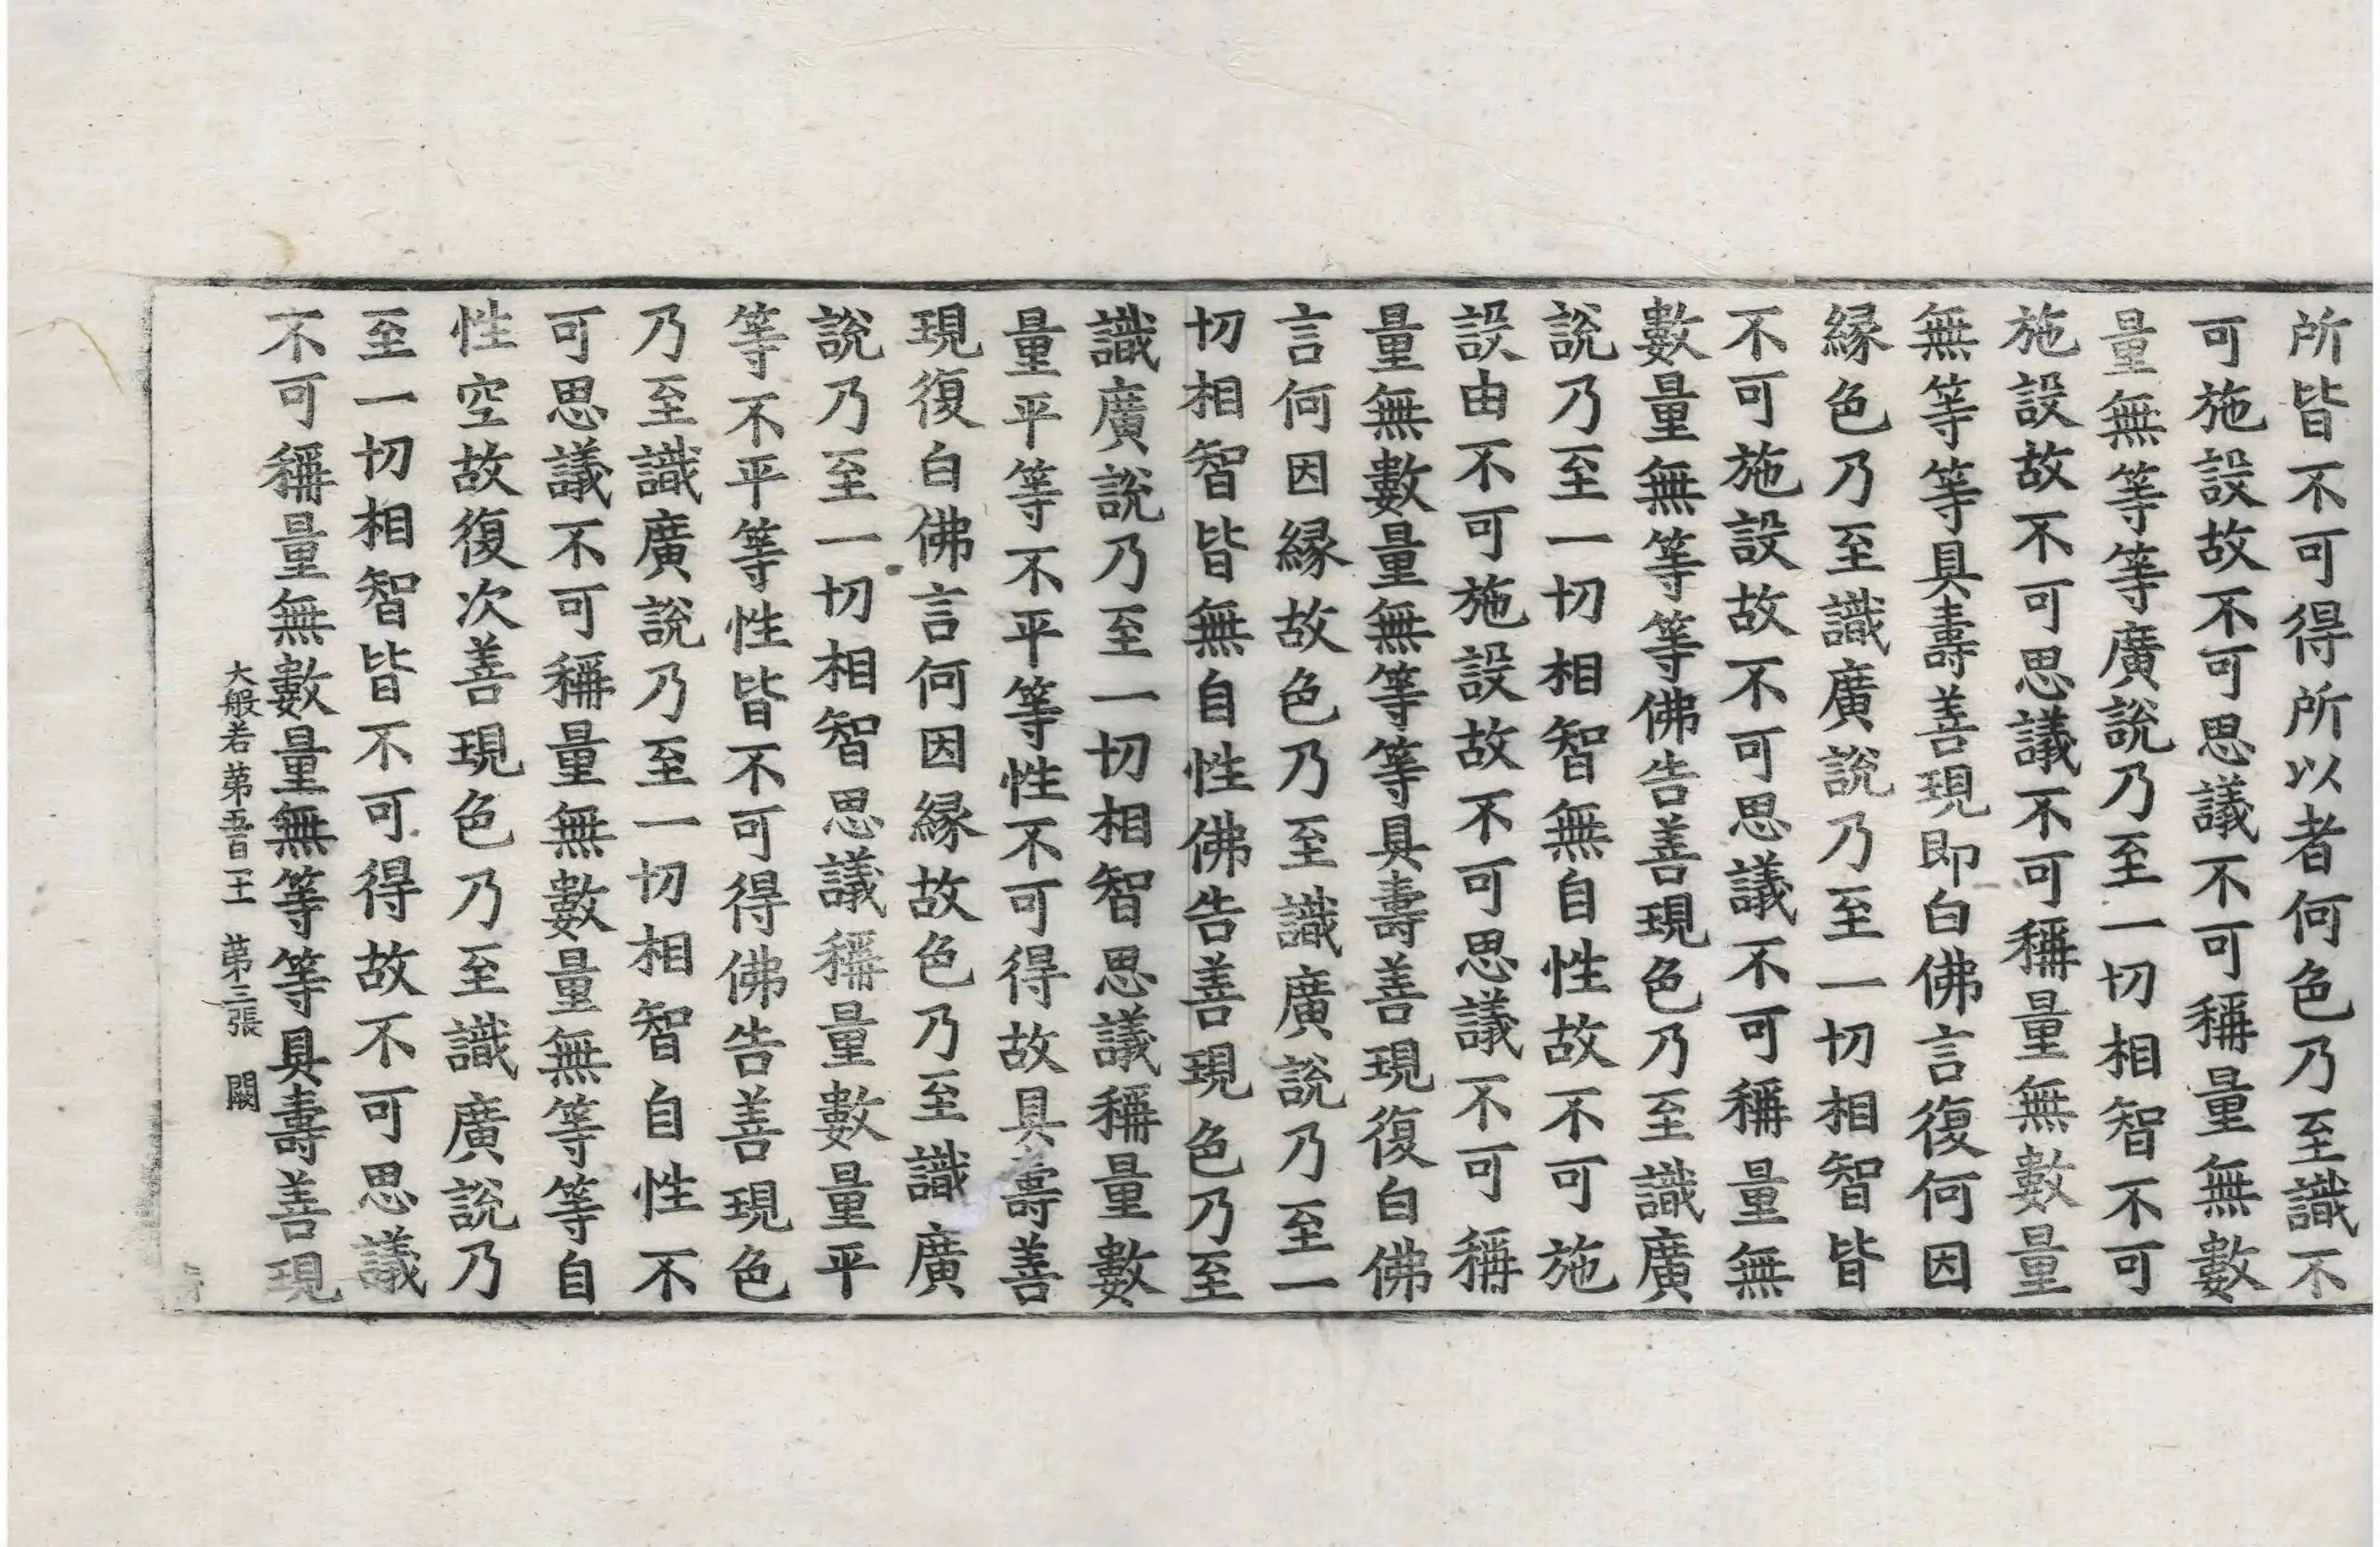 所皆不可得所以者何色乃至識不
可施設故不可思議不可稱量無數
量無等等廣說乃至一切相智不可
施設故不可思議不可稱量無數量
無等等具壽善現即白佛言復何因
緣色乃至識廣說乃至一切相智皆
不可施設故不可思議不可稱量無
數量無等等佛告善現色乃至識廣
說乃至一切相智無自性故不可施
設由不可施設故不可思議不可稱
量無數量無等等具壽善現復白佛
言何因緣故色乃至識廣說乃至一
切相智皆無自性佛告善現色乃至
識廣說乃至一切相智思議稱量數
量平等不平等性不可得故具壽善
現復白佛言何因緣故色乃至識廣
說乃至一切相智思議稱量數量平
等不平等性皆不可得佛告善現色
乃至識廣說乃至一切相智自性不
可思議不可稱量無數量無等等自
性空故復次善現色乃至識廣說乃
至一切相智皆不可得故不可思議
不可稱量無數量無等等具壽善現
大般若第五百四十五 第三張 闕